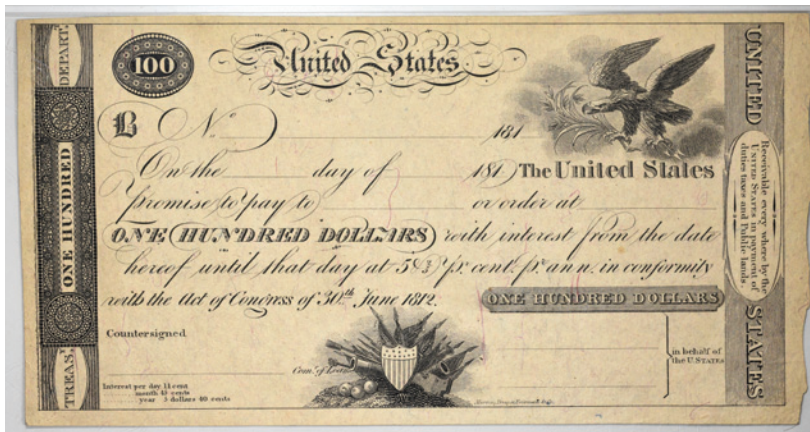 DEPART.
ONE HUNDRED
TREAS.Y
100
United States
B No. 181
On the day of 181 The United States
promise to pay to or order at
ONE HUNDRED DOLLARS with interest from the date
hereof until that day at 5⅖ pr. cent. pr. ann. in conformity
with the Act of Congress of 30th June 1812.
ONE HUNDRED DOLLARS
Countersigned
Com.r of Loans
in behalf of
the U. STATES
Interest per day 1½ cent
month 45 cents
year 5 dollars 40 cents
UNITED
STATES
Receivable every where by the
UNITED STATES in payment of
duties taxes and Public lands.